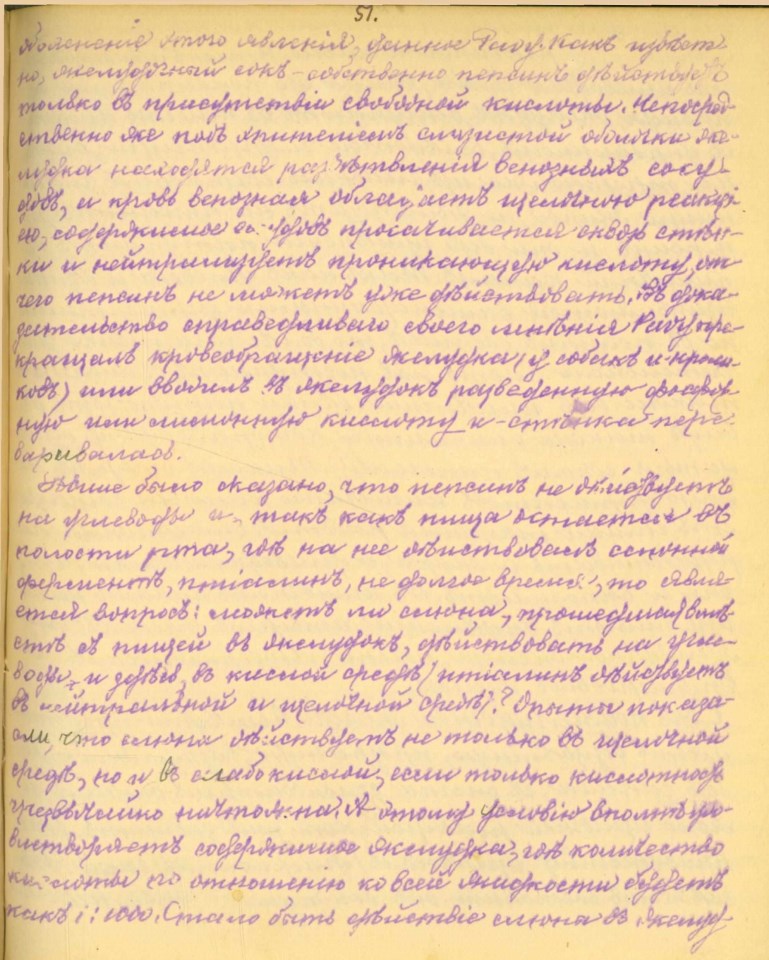 51.
объясненіе этого явленія, данное Pavy. Какъ извѣст
но, желудочный сокъ – собственно пепсинъ дѣйствуетъ
только въ присутствіи свободной кислоты. Непосред
ственно же подъ эпителіемъ слизистой оболочки же-
лудка находятся развѣтвленія венозныхъ сосу-
довъ, и кровь венозная обладаетъ щелочною реакці
ею, содержимое сосудовъ просачивается сквозь стѣн-
ки и нейтрализуетъ проникающую кислоту, от
чего пепсинъ не можетъ уже дѣйствовать. Въ дока-
зательство справедливаго своего мнѣнія Pavy пре-
кращалъ кровеобращеніе желудка (у собакъ и кроли-
ковъ) или вводилъ въ желудокъ разведенную фосфор
ную или лимонную кислоту и – стѣнка пере
варивалась.
Выше было сказано, что пепсинъ не дѣйствуетъ
на углеводы и, такъ какъ пища остается въ
полости рта, гдѣ на нее дѣйствовалъ слюнной
ферментъ, птіалинъ, не долгое время, то явля-
ется вопросъ: можетъ ли слюна, прошедшая вмѣ-
стѣ съ пищей въ желудокъ, дѣйствовать на угле-
воды и здѣсь, въ кислой средѣ (птіалинъ дѣйствуетъ
въ нейтральной и щелочной средѣ)? Опыты показа-
ли, что слюна дѣйствуетъ не только въ щелочной
средѣ, но и въ слабокислой, если только кислотность
чрезвычайно ничтожна. Этому условію вполнѣ удо-
влетворяетъ содержимое желудка, гдѣ количество
кислоты по отношенію ко всей жидкости будетъ
какъ 1:1000. Стало быть дѣйствіе слюны въ желуд-